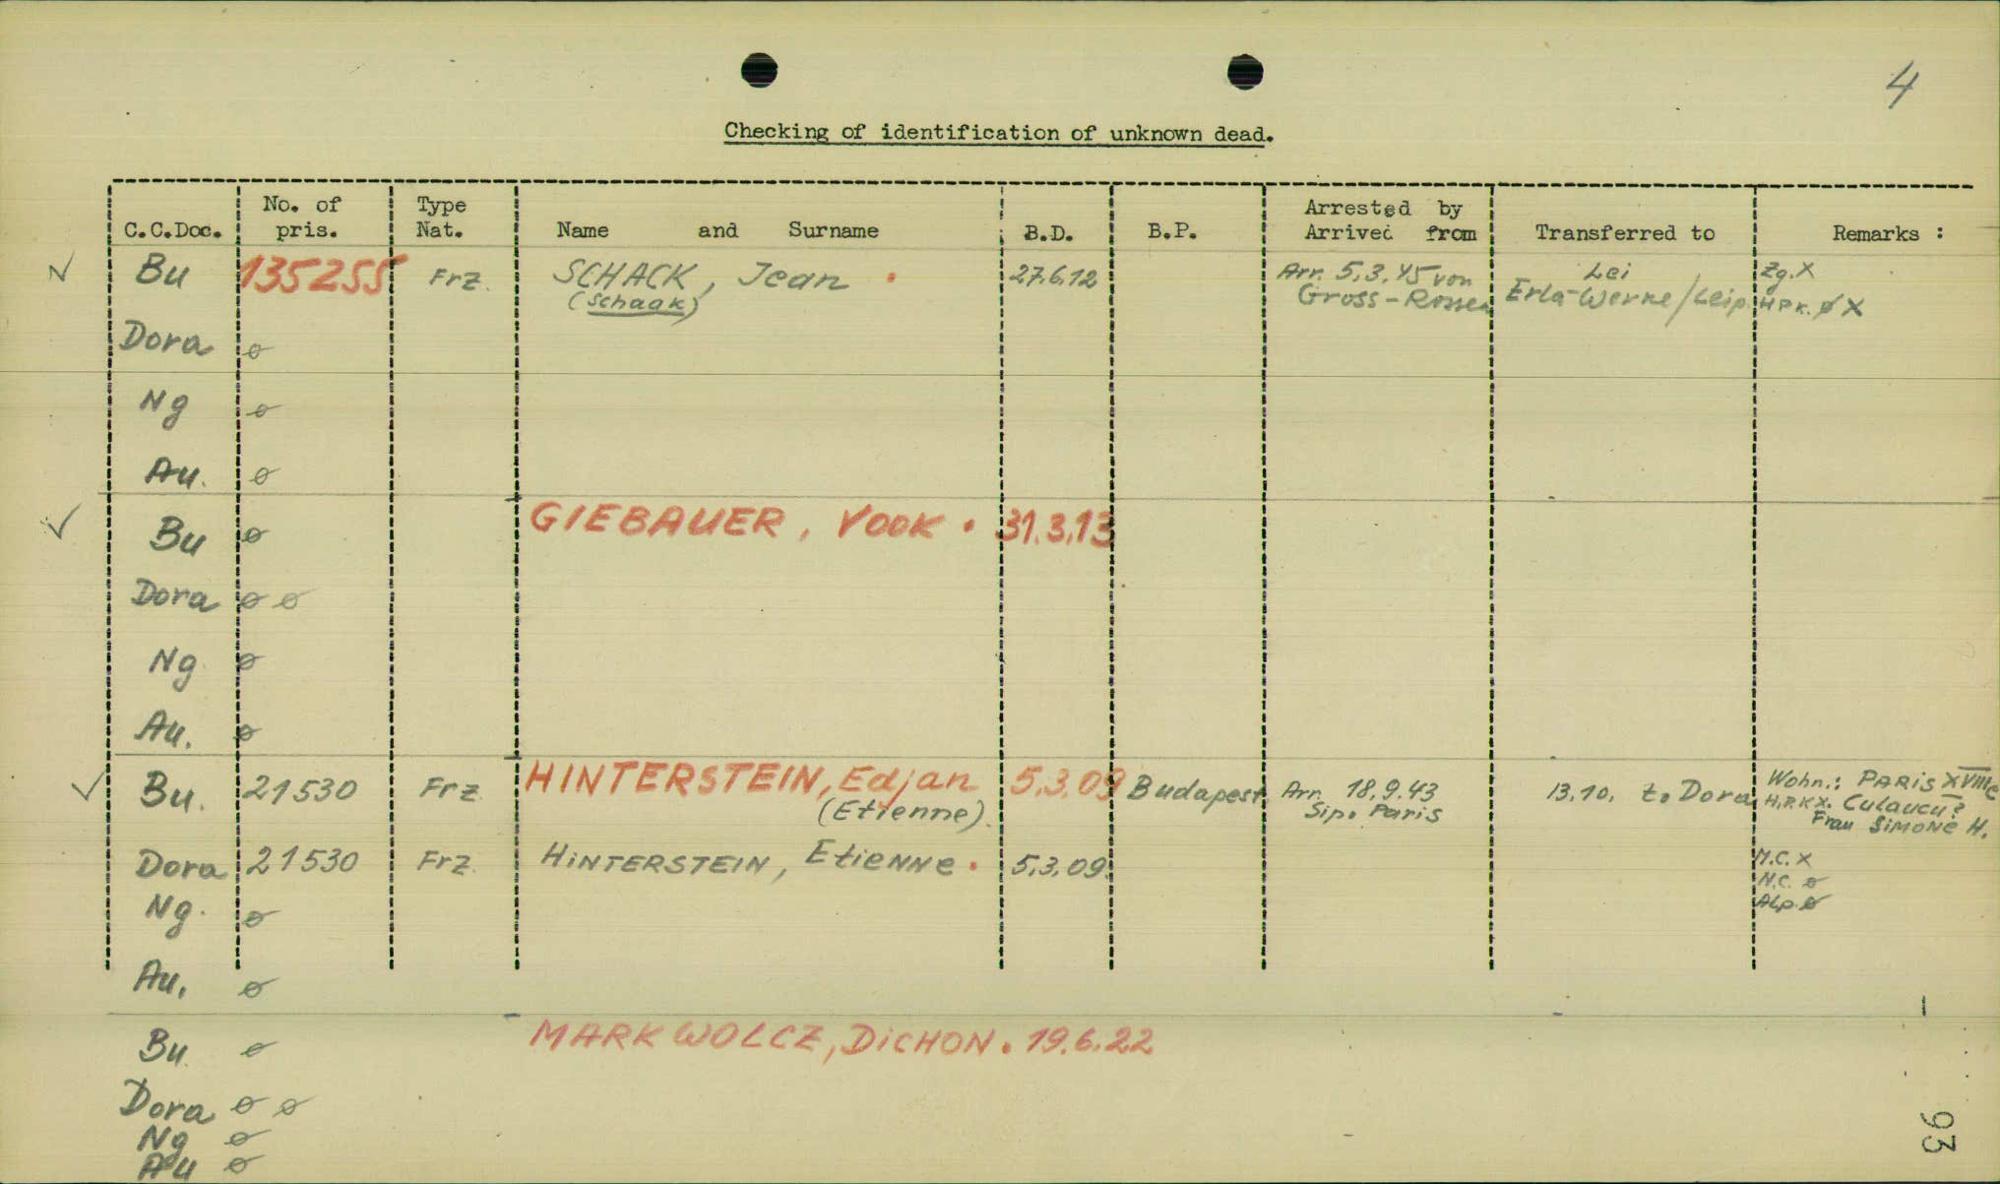 4
Checking of identification of unknown dead.
C.C.Doc. No. of pris. Type Nat. Name and Surname B.D. B.P. Arrested by Arrived from Transferred to Remarks :
Bu 135255 Frz. SCHACK, Jean . 27.6.12 Arr. 5.3.45 von Lei Zg.X
(Schaak) Gross-Rosen Erla-Werke/Leip. H P K. ø X
Dora ø
Ng ø
Au. ø
Bu ø GIEBAUER, VOOK . 31.3.13
Dora ø ø
Ng ø
Au. ø
Bu. 21530 Frz HINTERSTEIN, Edjan 5.3.09 Budapest Arr. 18.9.43 13.10. z. Dora Wohn.: PARIS XVIIIe
(Etienne). Sip. Paris H.P.K X. Culaucu?
Frau SIMONE H.
Dora 21530 Frz. HINTERSTEIN, Etienne . 5.3.09. M.C. X
N.C. ø
Ng. ø Alp. ø
Au. ø
Bu ø MARKWOLCZ, DICHON . 19.6.22
Dora ø ø
Ng ø
Au ø
93